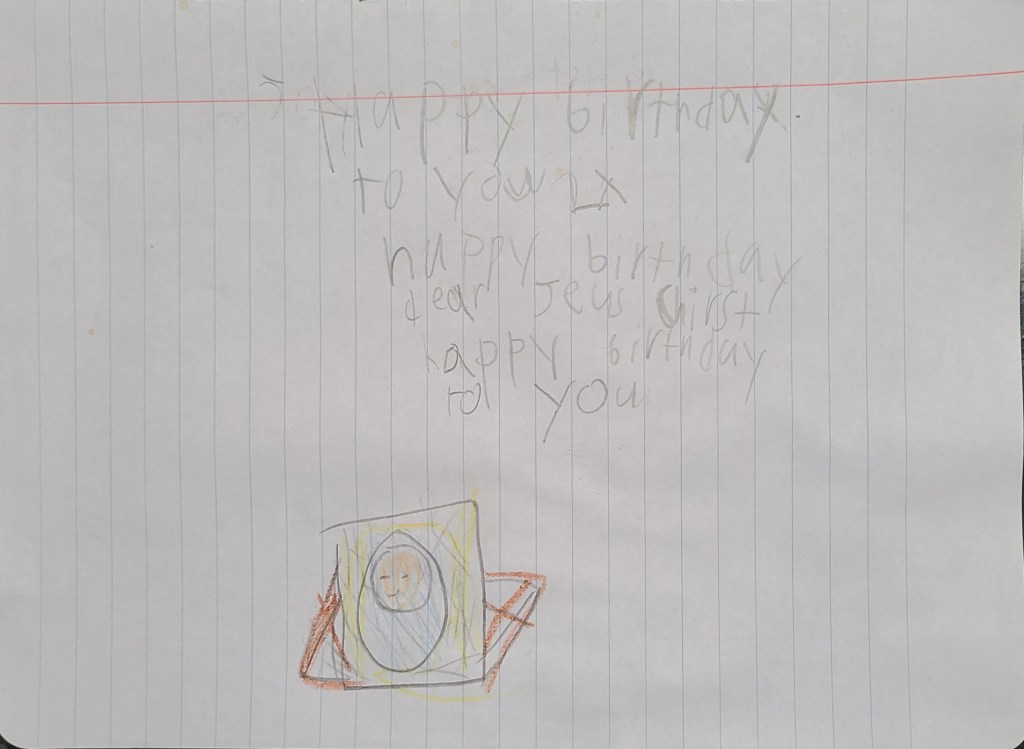 Happy birthday
to you 2x
happy birthday
dear Jeus Chirst
happy birthday
to you